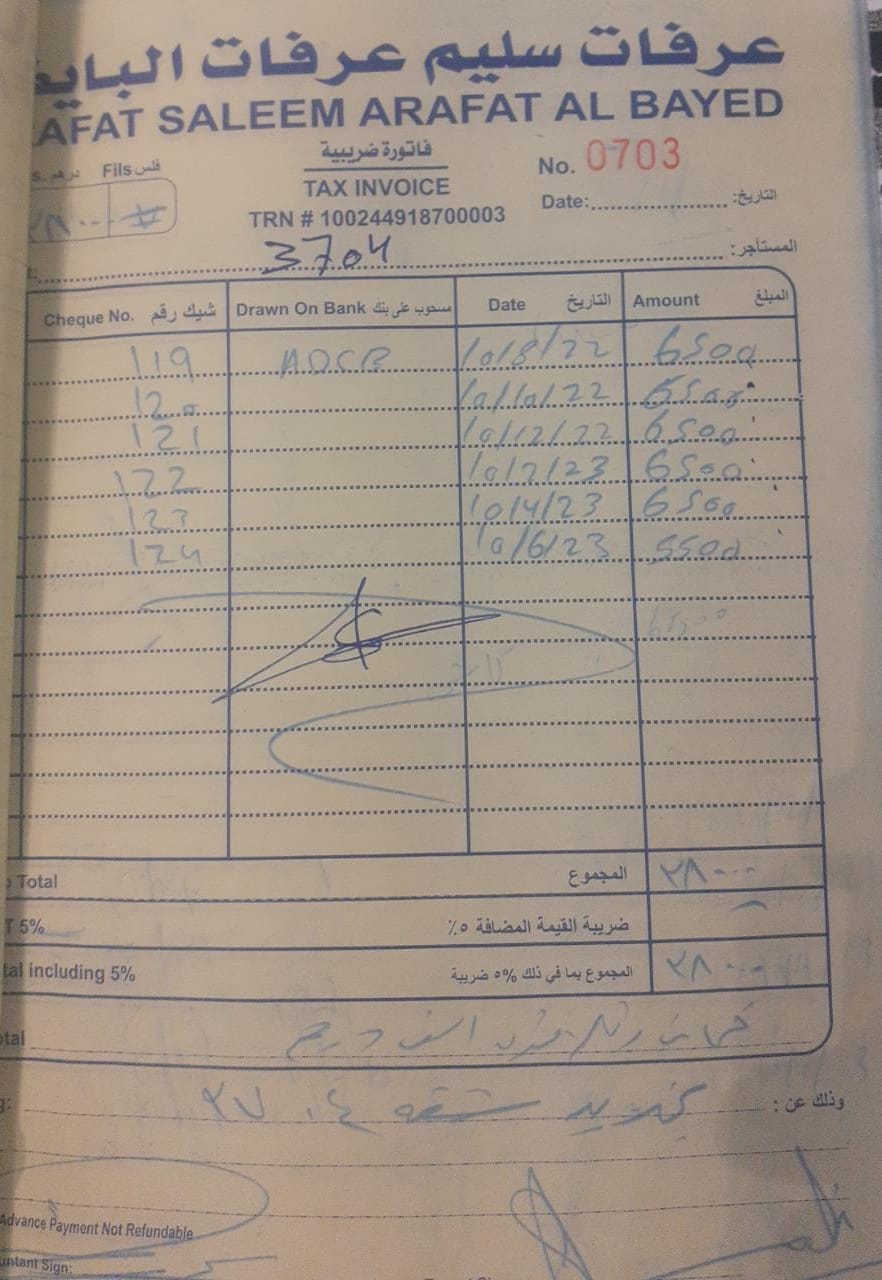 عرفات سليم عرفات البايض
AFAT SALEEM ARAFAT AL BAYED
فاتورة ضريبية
TAX INVOICE
TRN # 100244918700003
s. درهم Fils فلس
٣٨٠٠٠
No. 0703
Date: التاريخ:
3704 المستأجر:
Cheque No. شيك رقم Drawn On Bank مسحوب على بنك Date التاريخ Amount المبلغ
119 ADCB 10/8/22 6500
120 10/10/22 6500
121 10/12/22 6500
122 10/2/23 6500
123 10/4/23 6500
124 10/6/23 5500
Total المجموع ٣٨٠٠٠
T 5% ضريبة القيمة المضافة ٥٪
tal including 5% المجموع بما في ذلك 5% ضريبة ٣٨٠٠٠
otal الف درهم
وذلك عن : تجديد شقه ٣٧٠٤
Advance Payment Not Refundable
untant Sign: